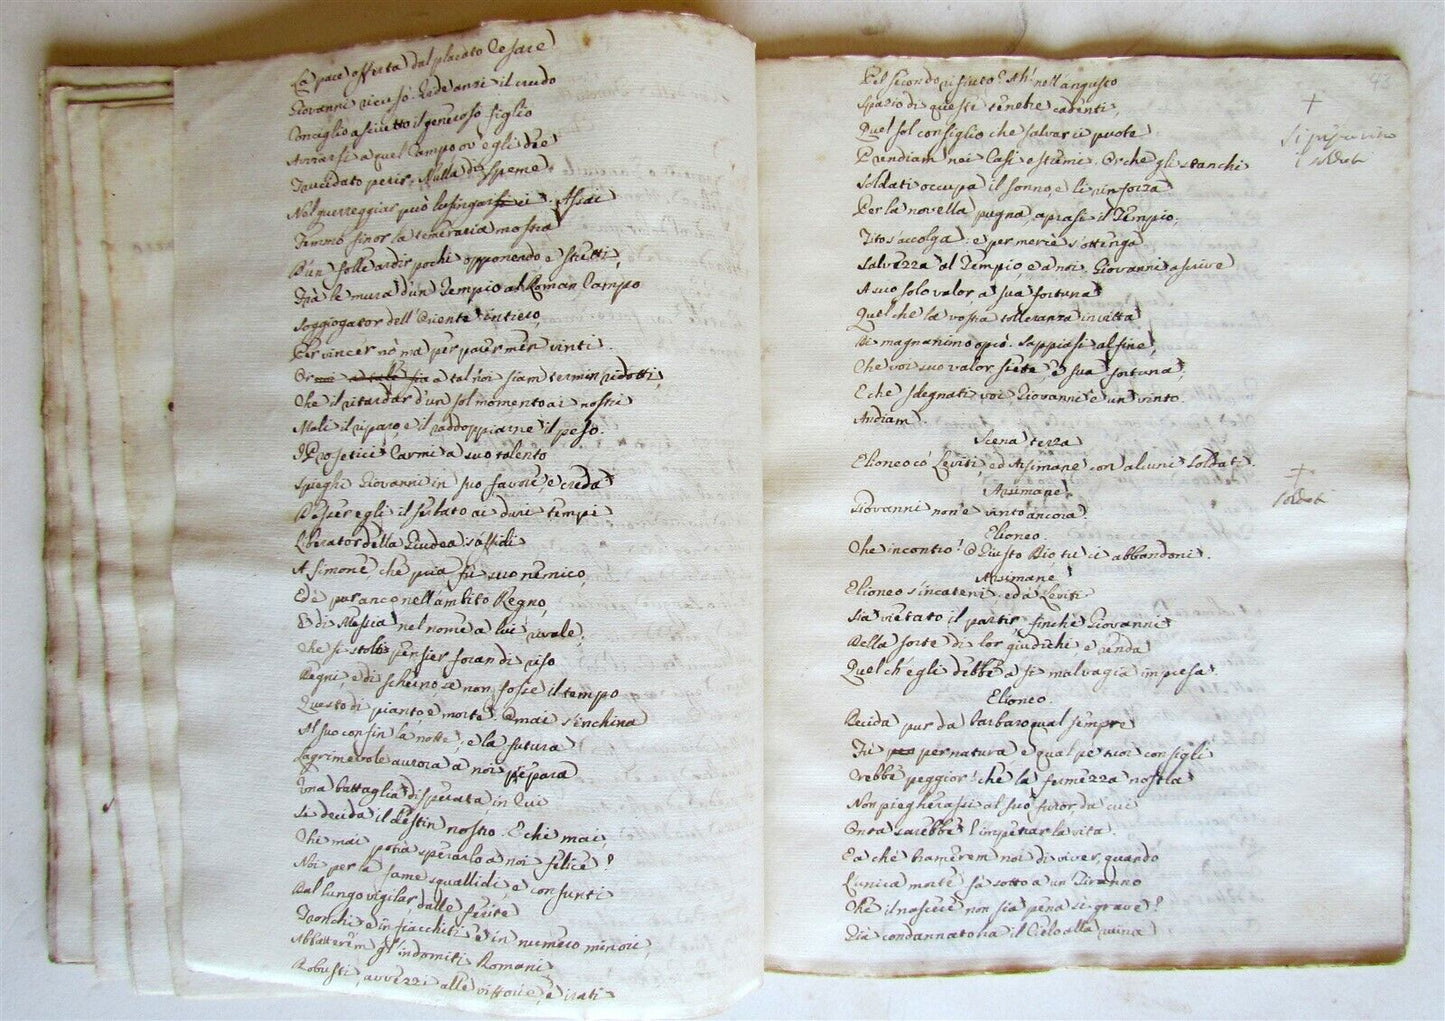 La pace offerta dal placato Cesare
Giovanni ricusò. Ede anzi il crudo
Consiglio a scritto il generoso figlio
Arrarsi a quel Campo ov'egli dee
Trucidato perir. Nulla di speme
Nel guerreggiar può lusingarsi ci. Assai
Femmo sinor la temeraria mostra
D'un folle ardir pochi opponendo e stretti,
Frà le mura d'un Tempio al Roman Campo
Soggiogator dell'Oriente intiero,
Per vincer nò ma per parer men vinti.
Or a tal noi siam termin ridotti,
Che il ritardar d'un sol momento ai nostri
Mali il riparo, e il raddoppiarne il peso.
I Profetici Carmi a suo talento
Spieghi Giovanni in suo favore, e creda
D'esser egli il serbato ai duri tempi
Liberator della Giudea
A Simone, che pria fù suo nemico,
Ed è pur anco nell'ambito Regno,
E di Messia nel nome a lui rivale;
Che si stolti pensier foran di riso
Degni, e di scherno se non fosse il tempo
Questo di pianto e morte. Omai s'inchina
Al suo confin la notte; e la futura
Lagrimevole aurora a noi prepara
Una battaglia disperata in cui
Se decida il destin nostro. E chi mai,
Chi mai potria sperarlo a noi felice?
Noi per la fame squallidi, e consunti
Dal lungo vigilar, dalle ferite
Tronchi e infiacchiti e in numero minori,
Abbatterem gl'indomiti Romani,
Robusti, avvezzi alle vittorie, e irati
Pel secondo rifiuto? Ah! nell'angusto
Spazio di queste tenebre cadenti,
Quel sol consiglio che salvar ci puote
Prendiam noi Casi estremi. Or che gli stanchi
Soldati occupa il sonno, e li rinforza
Per la novella pugna, aprasi il Tempio;
Tito s'accolga: e per mercè s'ottenga
Salvezza al Tempio, e a noi. Giovanni ascrive
A suo solo valor, a sua fortuna
Quel che la vostra tolleranza invitta
Di magnanimo oprò. Sappiasi alfine,
Che voi suo valor siete, e sua fortuna,
E che sdegnati voi Giovanni è un vinto.
Andiam.
Scena terza
Elioneo co' Leviti, ed Assimane con alcuni soldati.
Assimane
Giovanni non è vinto ancora.
Elioneo.
Che incontro! O Giusto Dio, tu ci abbandoni.
Assimane
Elioneo s'incateni, ed a Leviti
Sia vietato il partir finchè Giovanni
Della sorte di lor giudichi e renda
Quel ch'egli debbe a sì malvagia impresa.
Elioneo.
Decida pur da barbaro qual sempre
Fù per natura, e qual pe' tuoi consigli
Crebbe peggior: che la fermezza nostra
Non piegherassi al suo furor da cui
Onta sarebbe l'impetrar la vita.
E a che bramerem noi di viver, quando
L'unica morte fà sotto a un Tiranno
Che il nascere non sia pena sì grave?
Già condannato ha il Cielo alla ruina
43
+
+
soldati